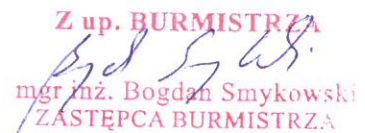 Z up. BURMISTRZA
mgr inż. Bogdan Smykowski
ZASTĘPCA BURMISTRZA